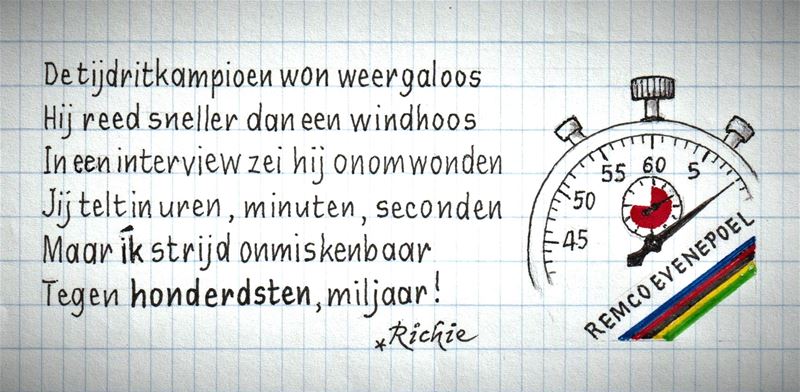 De tijdritkampioen won weergaloos
Hij reed sneller dan een windhoos
In een interview zei hij onomwonden
Jij telt in uren, minuten, seconden
Maar ík strijd onmiskenbaar
Tegen honderdsten, miljaar!
*Richie
45
50
55
60
5
REMCO EVENEPOEL